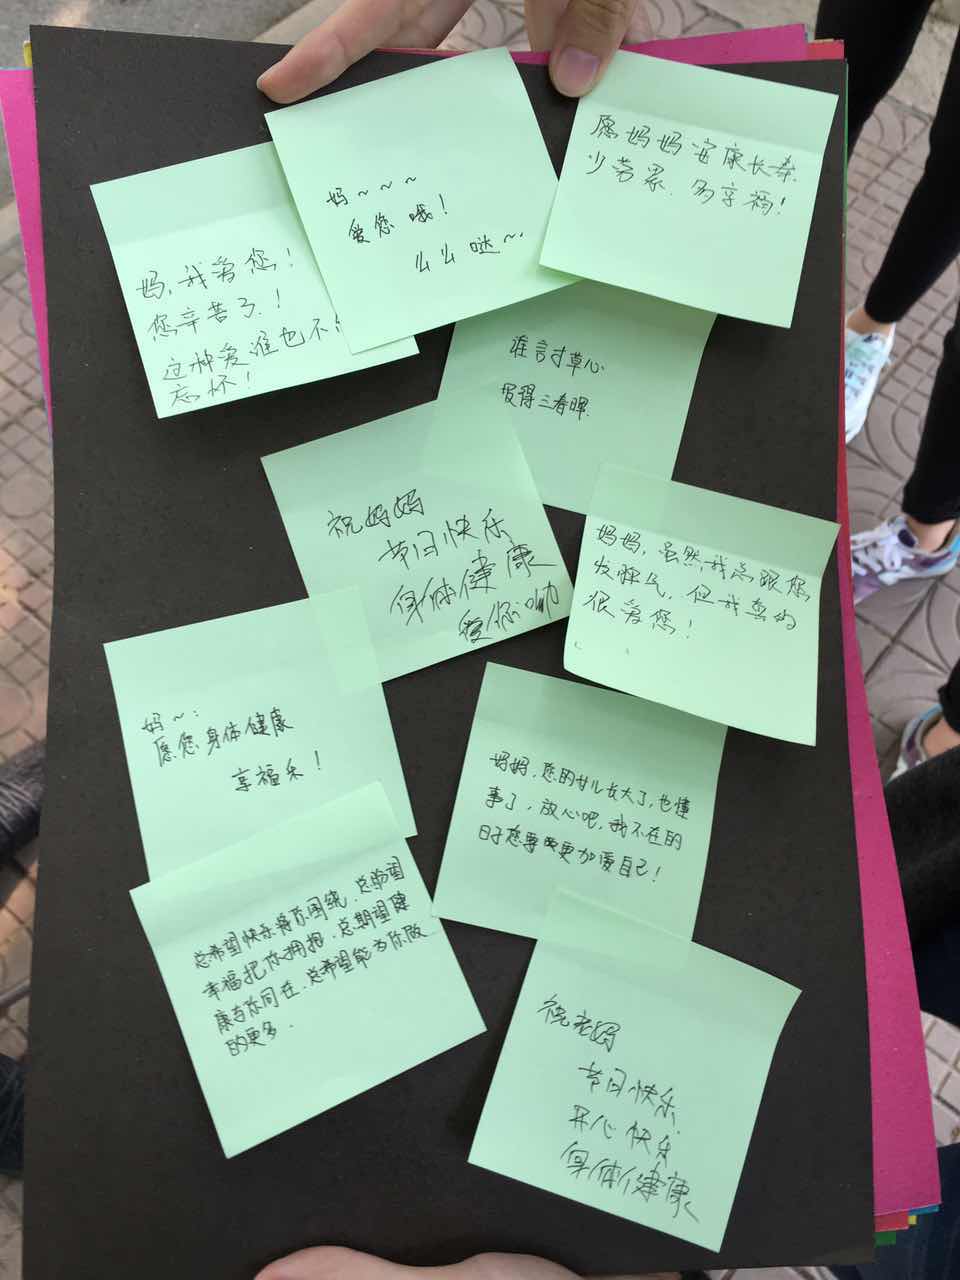 妈~~~
爱您哦!
么么哒~
愿妈妈安康长寿.
少劳累.多享福!
妈,我爱您!
您辛苦了!
这种爱谁也不
忘怀!
谁言寸草心
报得三春晖.
祝妈妈
节日快乐
身体健康
爱你呦
妈妈,虽然我总跟您
发脾气,但我真的
很爱您!
妈~:
愿您身体健康
享福乐!
妈妈,您的女儿长大了,也懂
事了,放心吧,我不在的
日子您要更加爱自己!
总希望快乐将你围绕,总盼望
幸福把你拥抱,总期望健
康与你同在.总希望能为你做
的更多.
祝老妈
节日快乐
开心快乐
身体健康